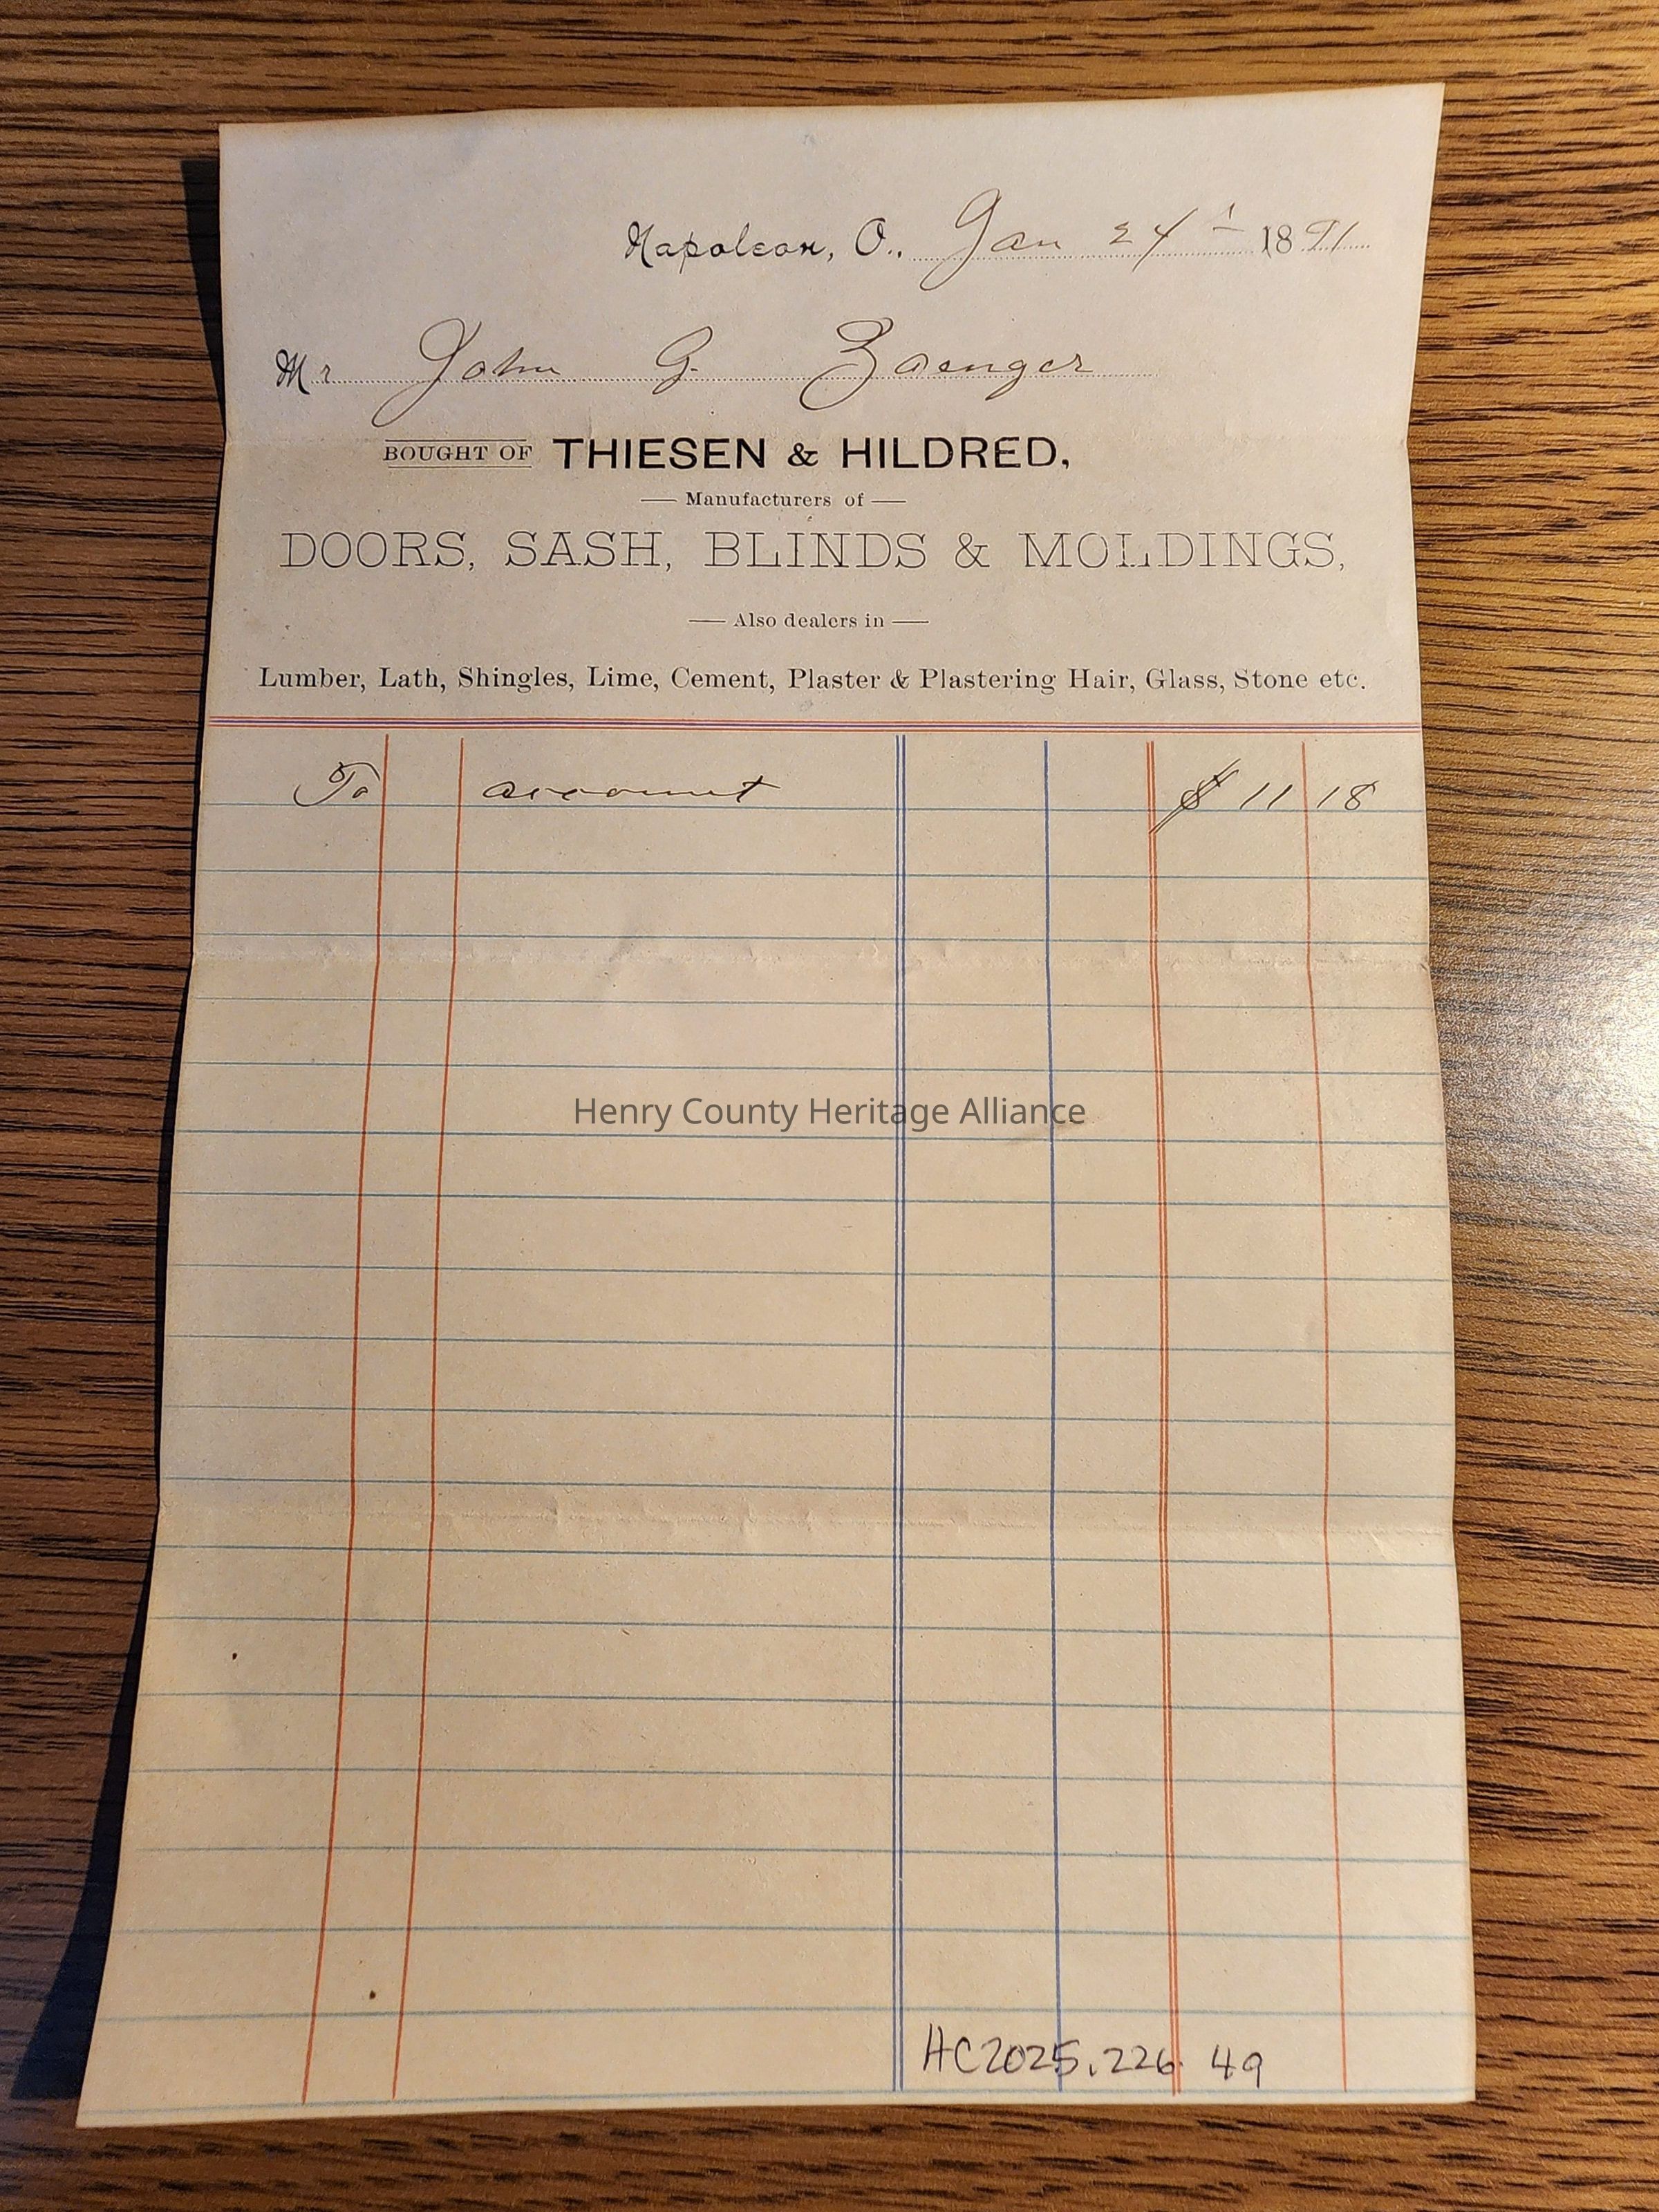 Napoleon, O., Jan 24th 1891
Mr John G. Zaenger
BOUGHT OF THIESEN & HILDRED,
— Manufacturers of —
DOORS, SASH, BLINDS & MOLDINGS,
— Also dealers in —
Lumber, Lath, Shingles, Lime, Cement, Plaster & Plastering Hair, Glass, Stone etc.
To account $ 11 18
Henry County Heritage Alliance
HC2025.226.49